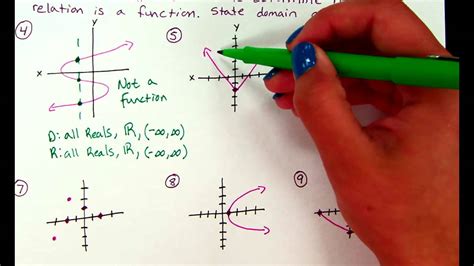 relation is a function. State domain
④ y
x
Not a
function
D: all Reals, ℝ, (-∞,∞)
R: all Reals, ℝ, (-∞,∞)
⑤ y
x
⑦
⑧
⑨